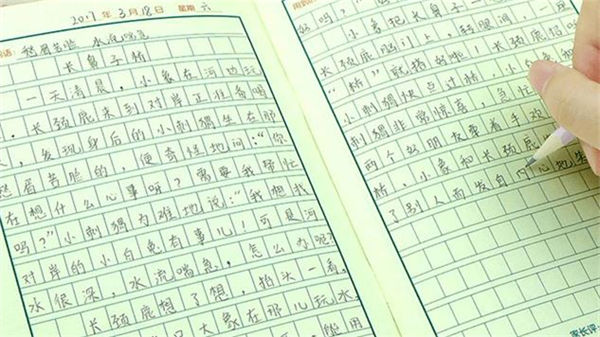 2017年3月18日 星期 六
语: 愁眉苦脸 水流喘急
长鼻子桥
一天清晨，小象在河边玩
，长颈鹿来到对岸正准备喝
，发现身后的小刺猬坐在那
愁眉苦脸的，便奇怪地问：“你
在想什么心事呀？需要我帮忙
吗？”小刺猬为难地说：“我想找
对岸的小白兔有事儿！可是河
水很深，水流喘急，怎么办呢？
长颈鹿想了想，抬头一看，
大象在那儿玩水，
能用
好吗？
小象把长鼻子一
长颈鹿脑门上，转眼间，一座
“桥”就搭好啦。长颈鹿招
小刺猬快点过桥，小白兔
刺猬非常惊喜，急忙
两个好朋友牵着手欢
桥，小象和长颈鹿
了别人而发自内心地笑
家长评: